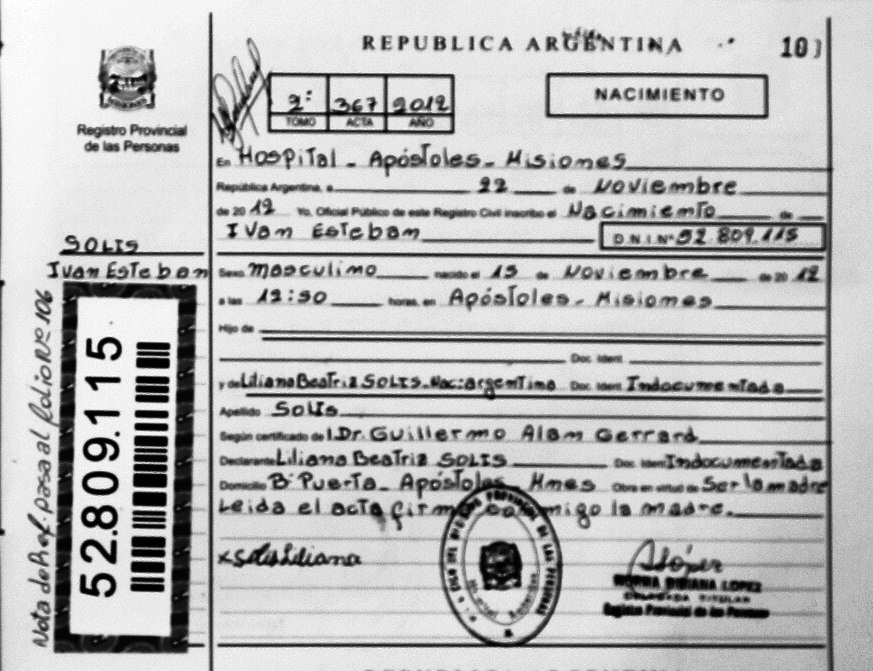 REPUBLICA ARGENTINA
10
2º 367 2012
TOMO ACTA AÑO
NACIMIENTO
Registro Provincial
de las Personas
En Hospital - Apóstoles - Misiones
República Argentina, a 22 de Noviembre
de 2012 Yo, Oficial Público de este Registro Civil inscribo el Nacimiento de
Ivan Esteban D.N.I. Nº 52.809.115
SOLIS
Ivan Esteban
Sexo masculino nacido el 15 de Noviembre de 2012
a las 12:50 horas, en Apóstoles - Misiones
Hijo de
Doc. Ident.
y de Liliana Beatriz SOLIS - Nac: argentina Doc. Ident. Indocumentada
Apellido Solis
Según certificado de Dr. Guillermo Alan Gerrard
Declarante Liliana Beatriz SOLIS Doc. Ident. Indocumentada
Domicilio Bº Puerta - Apóstoles - Mnes Obra en virtud de Ser la madre
Leida el acta firma conmigo la madre.
x Solis Liliana
NORMA BIBIANA LOPEZ
DELEGADA TITULAR
Registro Provincial de las Personas
Nota de Ref. pasa al folio Nº 106
52.809.115
REPUBLICA ARGENTINA